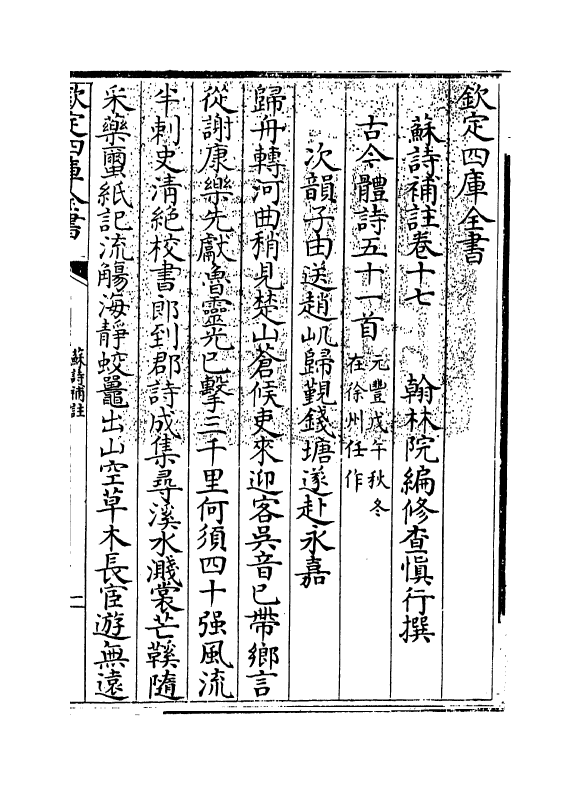 欽定四庫全書
蘇詩補註卷十七　　翰林院編修查慎行撰
古今體詩五十一首元豐戊午秋冬在徐州任作
次韻子由送趙㞦歸覲錢塘遂赴永嘉
歸舟轉河曲稍見楚山蒼候吏來迎客吳音已帶鄉言
從謝康樂先獻魯靈光已擊三千里何須四十强風流
半刺史清絶校書郎到郡詩成集尋溪水濺裳芒鞵隨
采藥蠒紙記流觴海靜蛟鼉出山空草木長宦遊無遠
欽定四庫全書
蘇詩補註
一